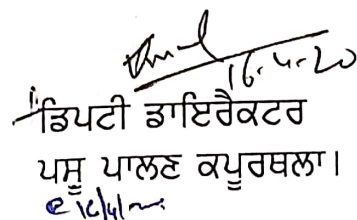 16.4.20
ਡਿਪਟੀ ਡਾਇਰੈਕਟਰ
ਪਸ਼ੂ ਪਾਲਣ ਕਪੂਰਥਲਾ।